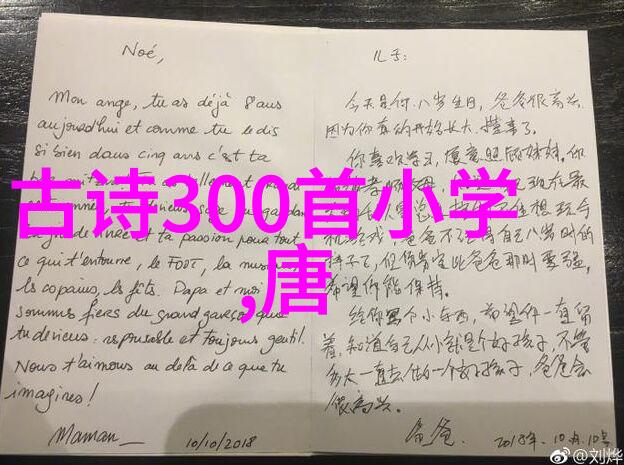 古诗300首小学
,唐
Noé,
Mon ange, tu as déjà 8 ans
aujourd'hui et comme tu le dis
si bien dans cinq ans c'est ta
et ta passion pour tout
ce qui t'entoure, le FOOT, la
les copains, les fêtes. Papa et moi
sommes fiers du grand garçon que
tu deviens: responsable et toujours gentil.
Nous t'aimons au delà de ce que tu
imagines!
Maman
10/10/2018
儿子:
今天是你八岁生日,爸爸很高兴
因为你真的开始长大,懂事了。
你喜欢学习,愿意照顾妹妹。你
爸爸不记得自己八岁时的
样子了,但你肯定比爸爸那时要强,
希望你能保持。
给你写个小东西,希望你一直留
着,知道自己从小就是个好孩子,不管
多大一直去做一个好孩子,爸爸会
很高兴。
爸爸
2018年10月10号
@刘烨